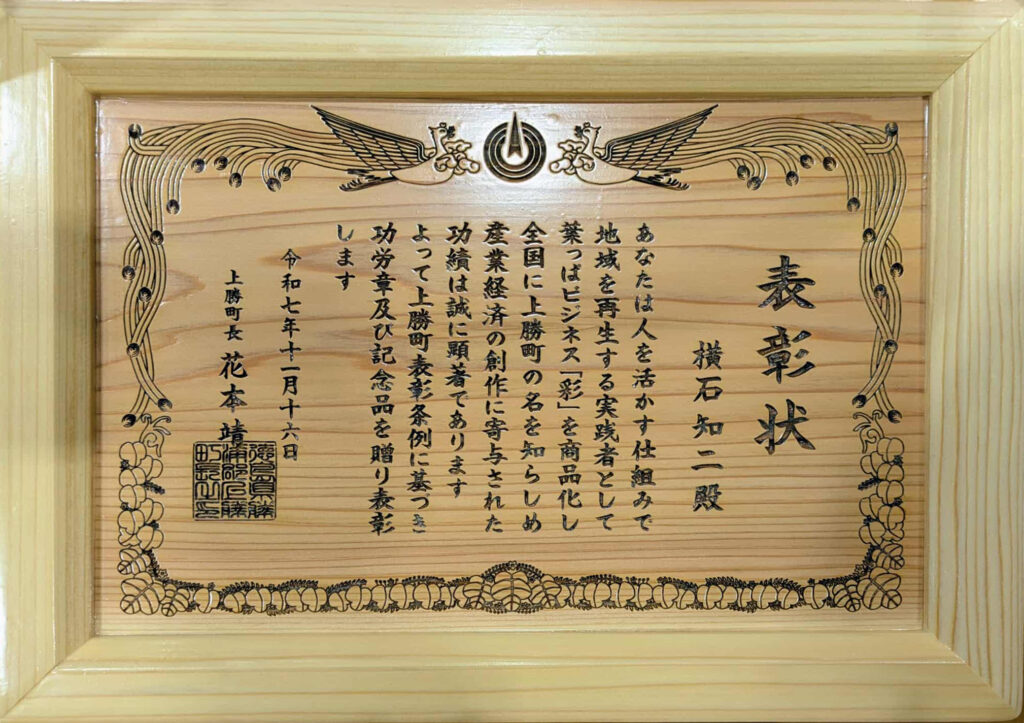 表彰状
横石知二殿
あなたは人を活かす仕組みで
地域を再生する実践者として
葉っぱビジネス「彩」を商品化し
全国に上勝町の名を知らしめ
産業経済の創作に寄与された
功績は誠に顕著であります
よって上勝町表彰条例に基づき
功労章及び記念品を贈り表彰
します
令和七年十一月十六日
上勝町長 花本靖